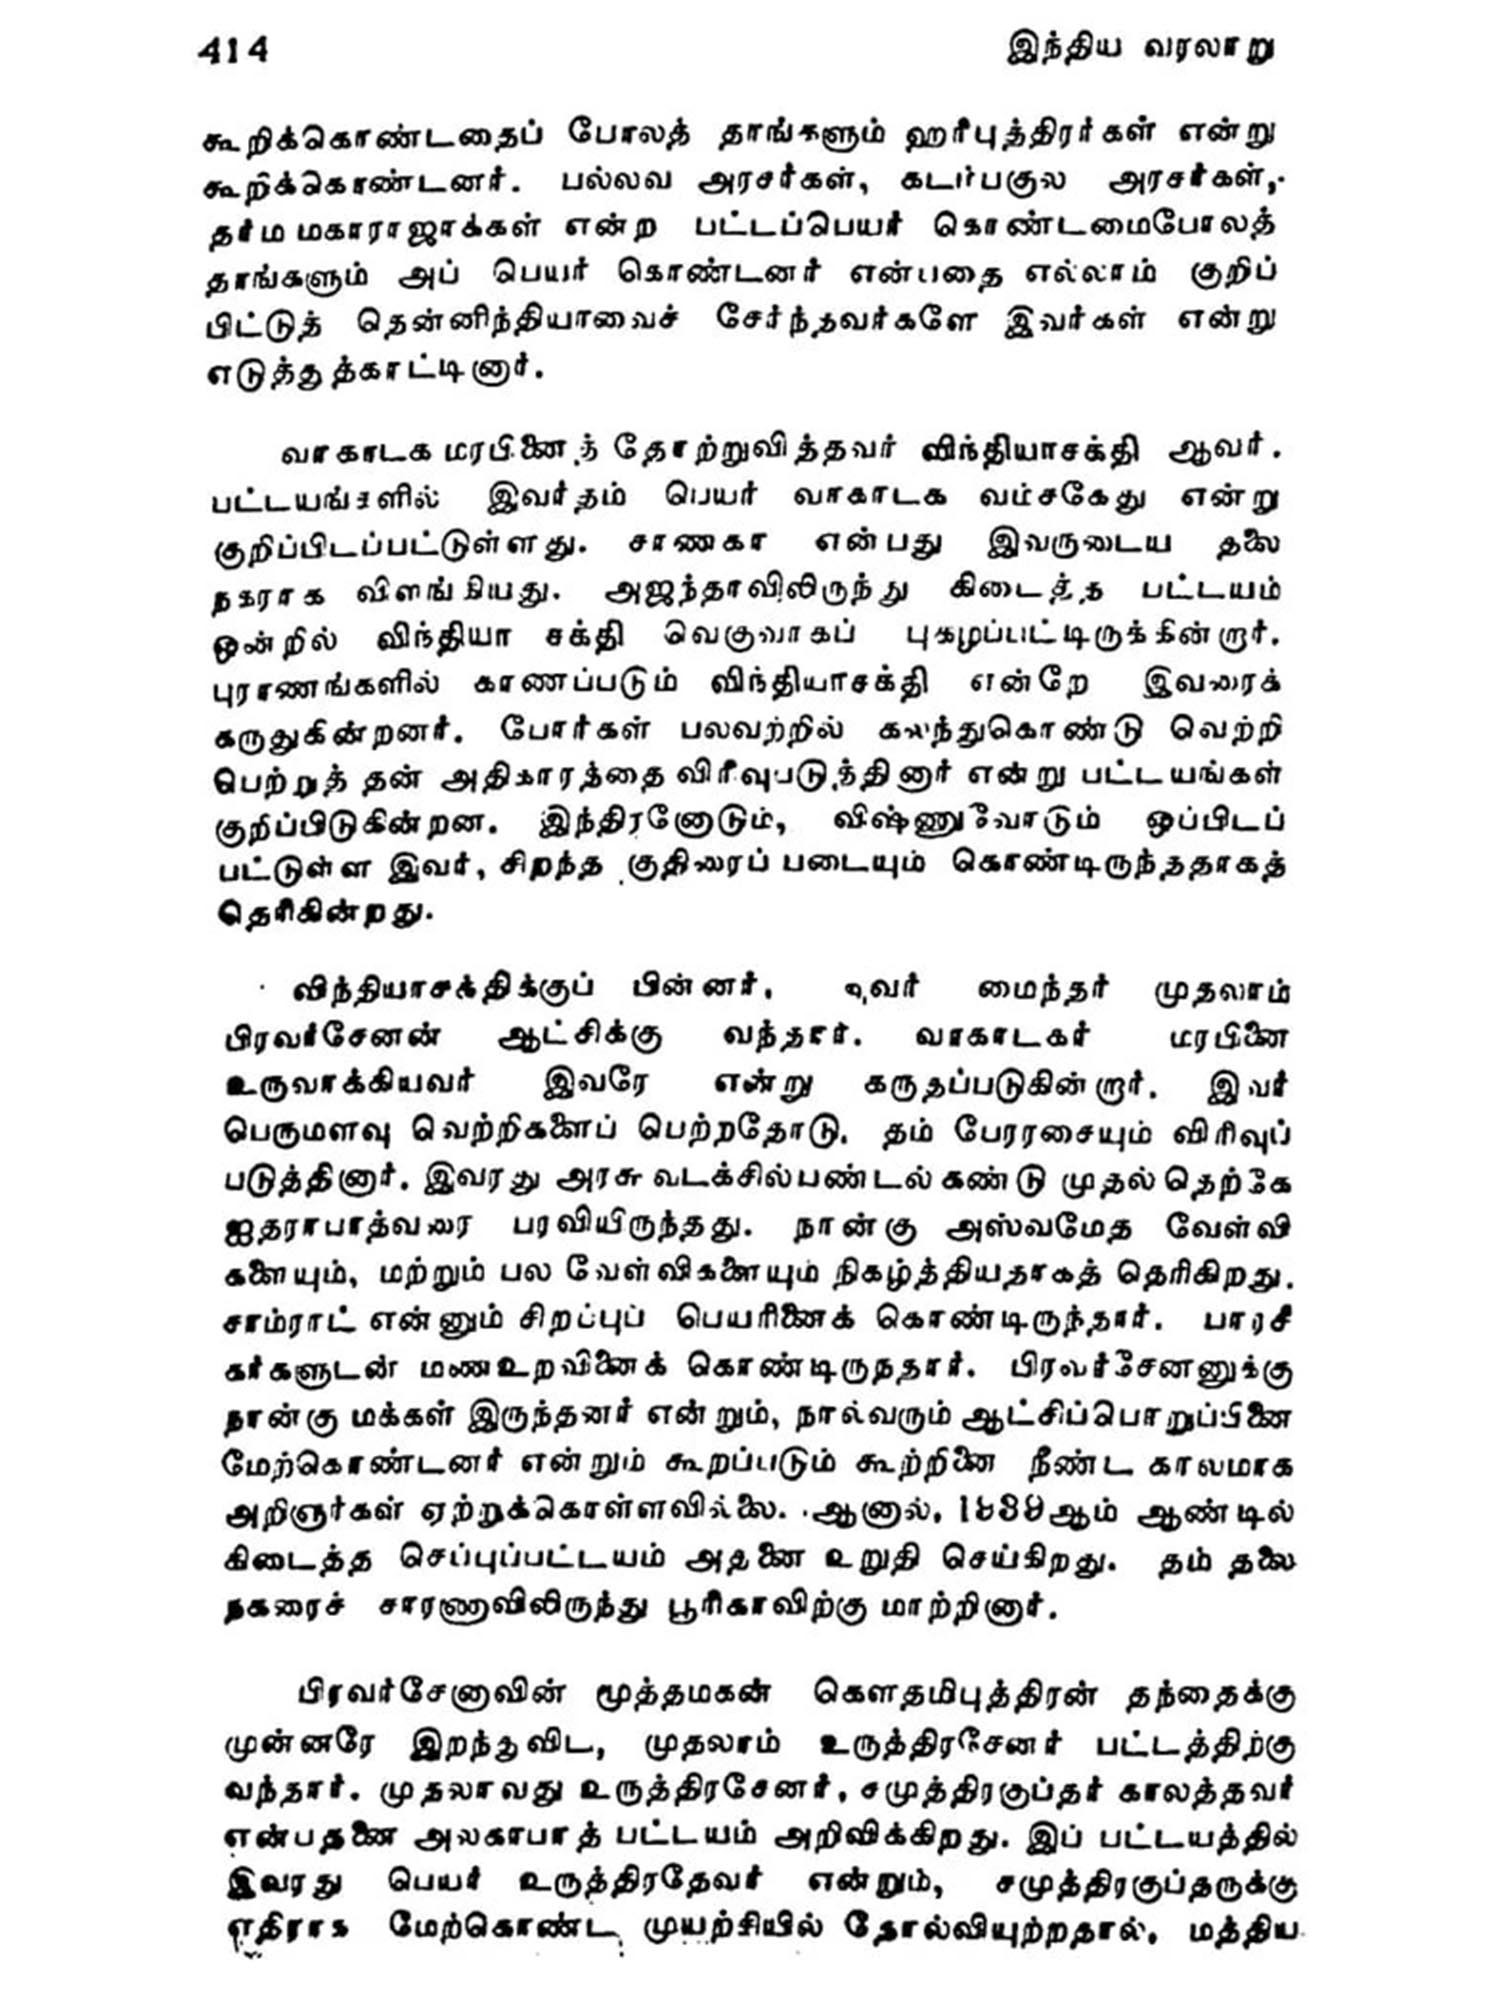 414
இந்திய வரலாறு
கூறிக்கொண்டதைப் போலத் தாங்களும் ஹரிபுத்திரர்கள் என்று
கூறிக்கொண்டனர். பல்லவ அரசர்கள், கடம்பகுல அரசர்கள்,
தர்ம மகாராஜாக்கள் என்ற பட்டப்பெயர் கொண்டமைபோலத்
தாங்களும் அப் பெயர் கொண்டனர் என்பதை எல்லாம் குறிப்
பிட்டுத் தென்னிந்தியாவைச் சேர்ந்தவர்களே இவர்கள் என்று
எடுத்துத்காட்டினார்.
வாகாடக மரபினைத் தோற்றுவித்தவர் விந்தியாசக்தி ஆவர்.
பட்டயங்களில் இவர்தம் பெயர் வாகாடக வம்சகேது என்று
குறிப்பிடப்பட்டுள்ளது. சாணகா என்பது இவருடைய தலை
நகராக விளங்கியது. அஜந்தாவிலிருந்து கிடைத்த பட்டயம்
ஒன்றில் விந்தியா சக்தி வெகுவாகப் புகழப்பட்டிருக்கின்றார்.
புராணங்களில் காணப்படும் விந்தியாசக்தி என்றே இவரைக்
கருதுகின்றனர். போர்கள் பலவற்றில் கலந்துகொண்டு வெற்றி
பெற்றுத் தன் அதிகாரத்தை விரிவுபடுத்தினார் என்று பட்டயங்கள்
குறிப்பிடுகின்றன. இந்திரனோடும், விஷ்ணுவோடும் ஒப்பிடப்
பட்டுள்ள இவர், சிறந்த குதிரைப் படையும் கொண்டிருந்ததாகத்
தெரிகின்றது.
விந்தியாசக்திக்குப் பின்னர், இவர் மைந்தர் முதலாம்
பிரவர்சேனன் ஆட்சிக்கு வந்தார். வாகாடகர் மரபினை
உருவாக்கியவர் இவரே என்று கருதப்படுகின்றார். இவர்
பெருமளவு வெற்றிகளைப் பெற்றதோடு, தம் பேரரசையும் விரிவுப்
படுத்தினார். இவரது அரசு வடக்சில்பண்டல்கண்டு முதல் தெற்கே
ஐதராபாத்வரை பரவியிருந்தது. நான்கு அஸ்வமேத வேள்வி
களையும், மற்றும் பல வேள்விகளையும் நிகழ்த்தியதாகத் தெரிகிறது.
சாம்ராட் என்னும் சிறப்புப் பெயரினைக் கொண்டிருந்தார். பாரசீ
கர்களுடன் மணஉறவினைக் கொண்டிருநதார். பிரவர்சேனனுக்கு
நான்கு மக்கள் இருந்தனர் என்றும், நால்வரும் ஆட்சிப்பொறுப்பினை
மேற்கொண்டனர் என்றும் கூறப்படும் கூற்றினை நீண்ட காலமாக
அறிஞர்கள் ஏற்றுக்கொள்ளவில்லை. ஆனால், ஆம் ஆண்டில்
கிடைத்த செப்புப்பட்டயம் அதனை உறுதி செய்கிறது. தம் தலை
நகரைச் சாரணாவிலிருந்து பூரிகாவிற்கு மாற்றினார்.
பிரவர்சேனாவின் மூத்தமகன் கௌதமிபுத்திரன் தந்தைக்கு
முன்னரே இறந்துவிட, முதலாம் உருத்திரசேனர் பட்டத்திற்கு
வந்தார். முதலாவது உருத்திரசேனர், சமுத்திரகுப்தர் காலத்தவர்
என்பதனை அலகாபாத் பட்டயம் அறிவிக்கிறது. இப் பட்டயத்தில்
இவரது பெயர் உருத்திரதேவர் என்றும், சமுத்திரகுப்தருக்கு
எதிராக மேற்கொண்ட முயற்சியில் தோல்வியுற்றதால், மத்திய